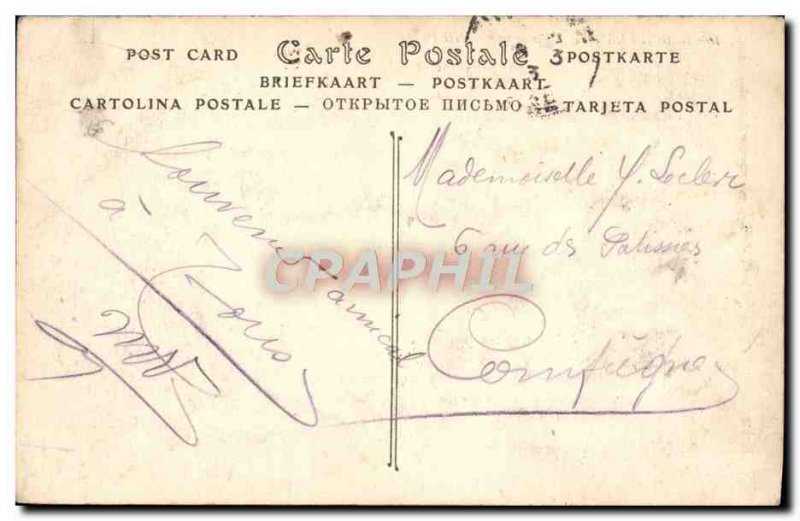 POST CARD Carte Postale POSTKARTE
BRIEFKAART — POSTKAART
CARTOLINA POSTALE — ОТКРЫТОЕ ПИСЬМО — TARJETA POSTAL
Souvenir amical
à Tous
Mademoiselle Y. Leclerc
6 rue des
Compiègne
CPAPHIL